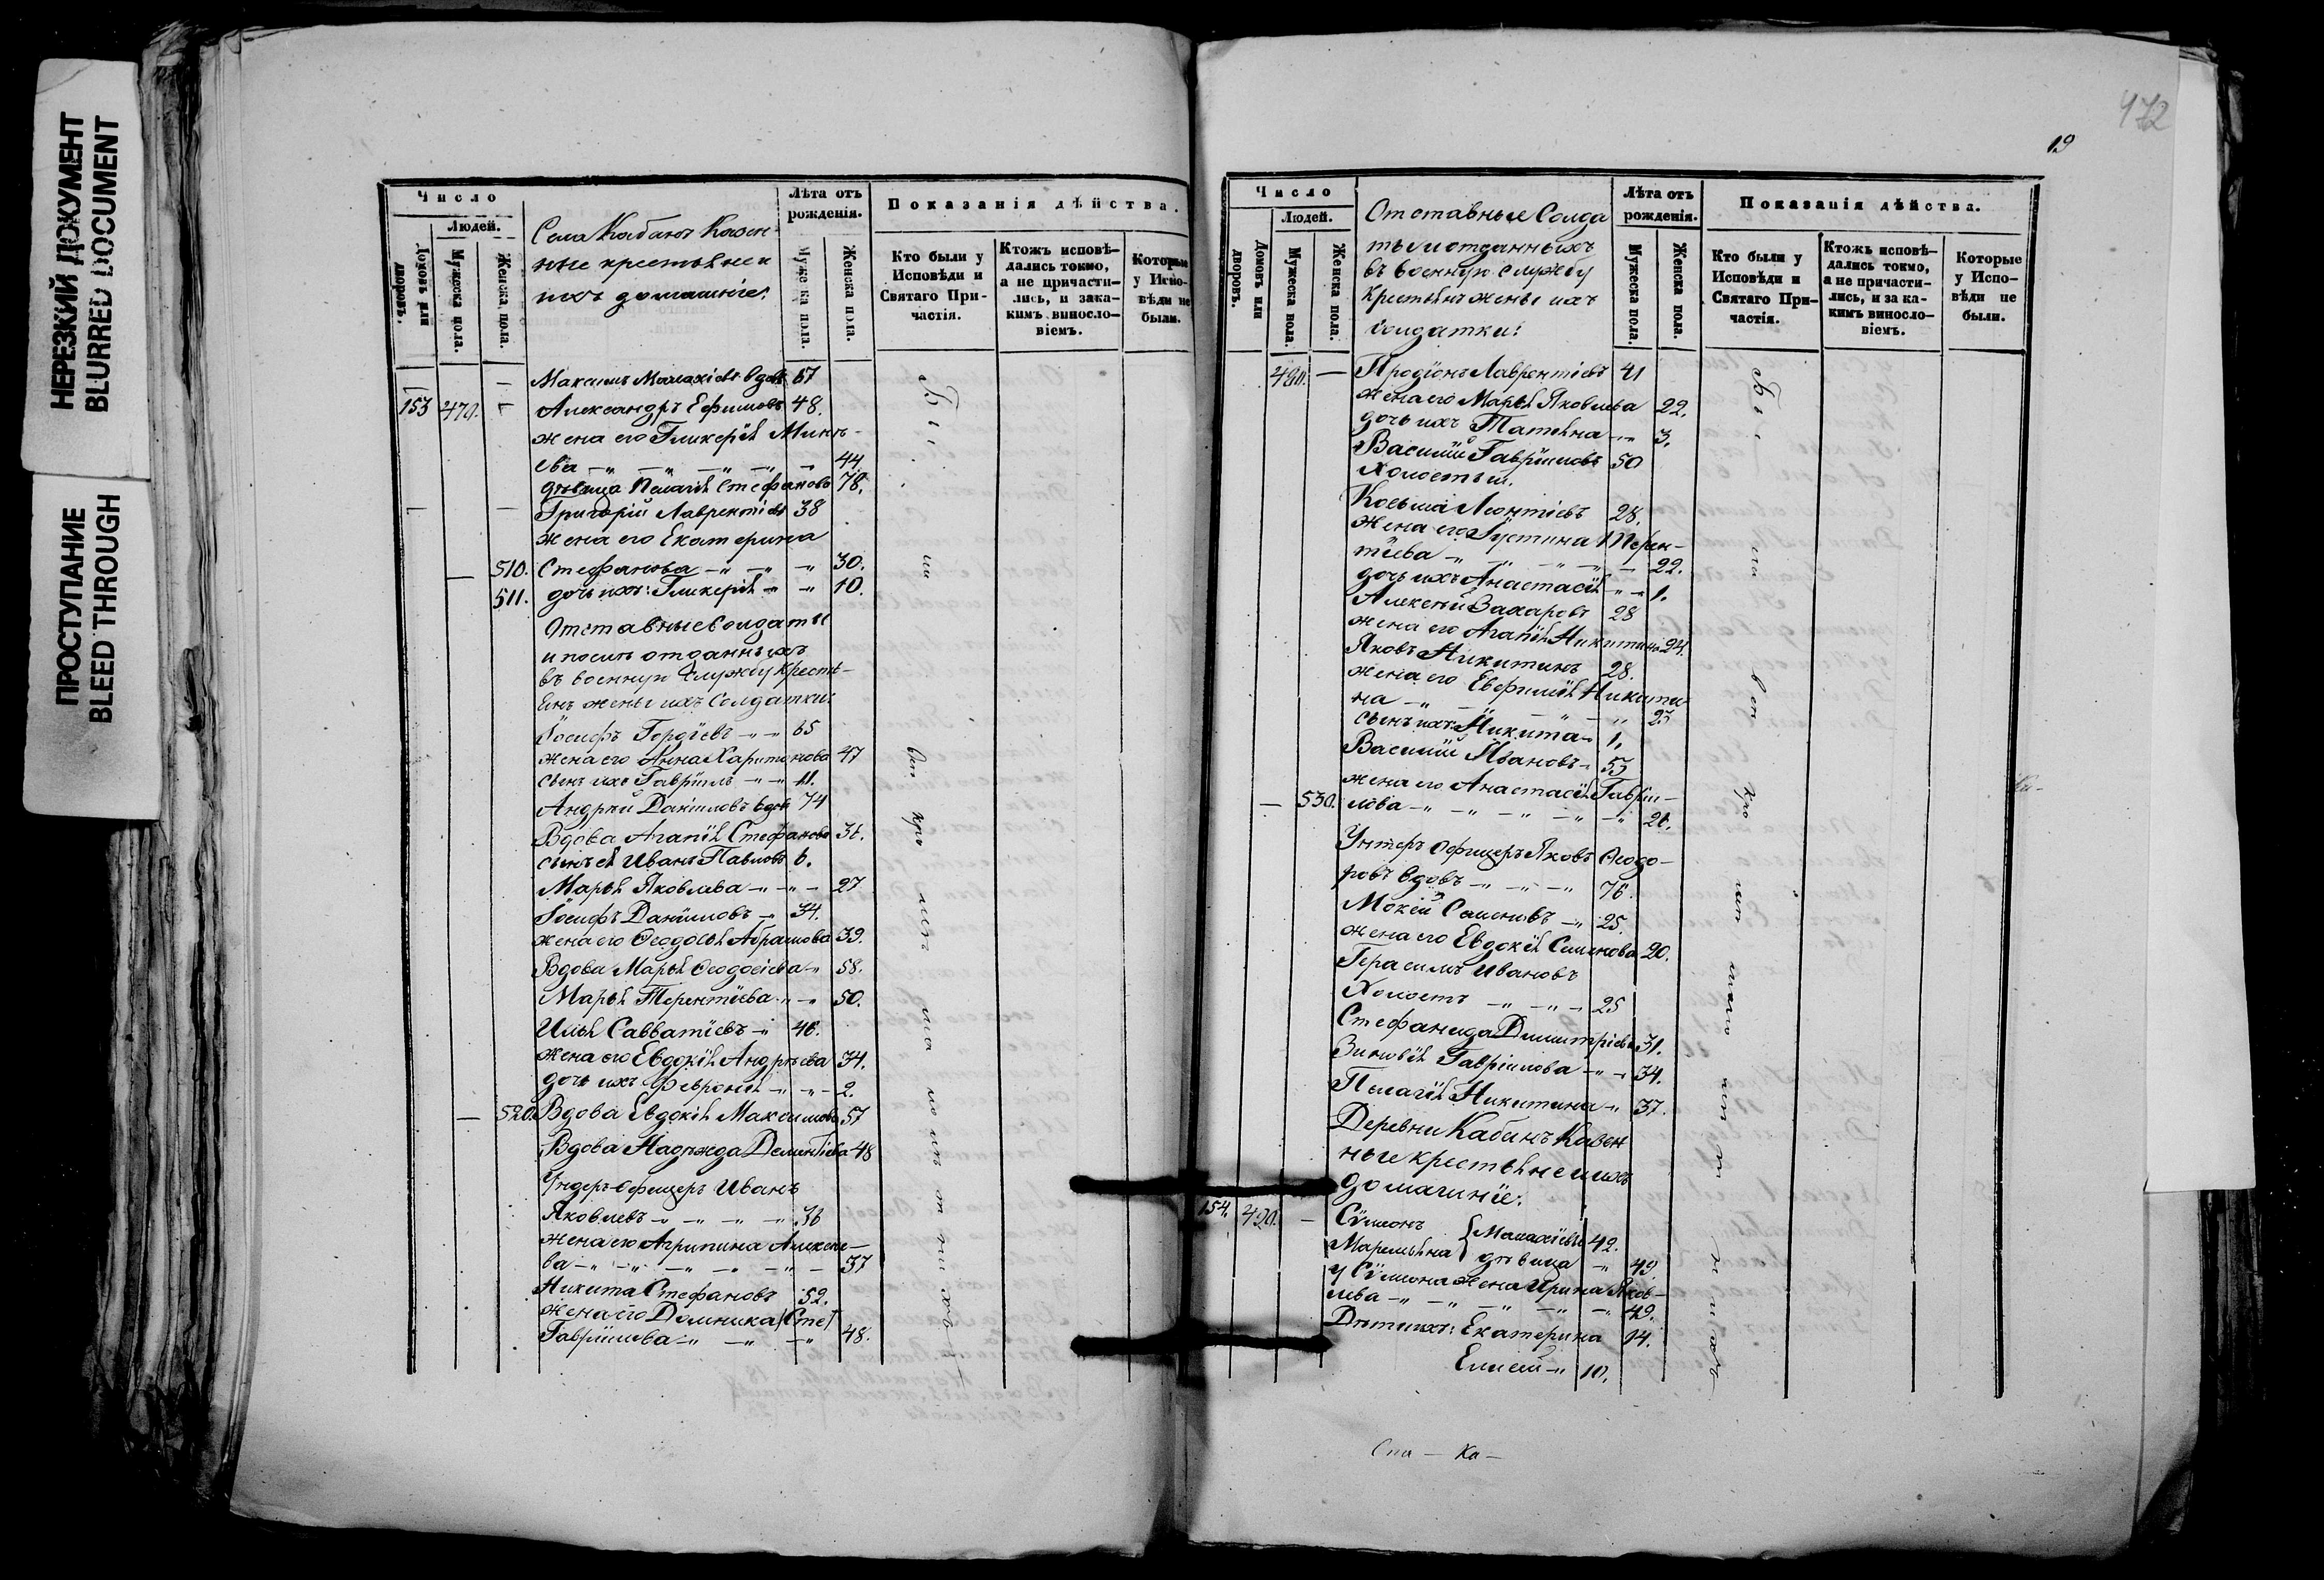 НЕРЕЗКИЙ ДОКУМЕНТ
BLURRED DOCUMENT
ПРОСТУПАНИЕ
BLEED THROUGH
Число
Людей.
Домовъ или дворовъ.
Мужеска пола.
Женска пола.
Села Кабанъ Казен-
ные крестьяне и
ихъ домашніе:
Лѣта отъ рожденія.
Мужеска пола.
Женска пола.
Показанія дѣйства.
Кто были у Исповѣди и Святаго Причастія.
Ктожъ исповѣ-
дались токмо,
а не причасти-
лись, и зака-
кимъ винословіемъ.
Которые
у Испо-
вѣди не
были.
Максимъ Малахіевъ вдовъ 67
153 470. Александръ Ефимовъ 48.
жена его Гликерія Мин-
ева 44.
дѣвица Пелагія Стефанова 78.
Григорій Лаврентіевъ 38
жена его Екатерина
510. Стефанова 30.
511. дочь ихъ: Гликерія 10.
Отставные Солдаты
и после отданныхъ
въ военную службу кресть-
янъ жены ихъ Солдатки:
Іосифъ Гордіевъ 65
жена его Анна Харитонова 47
сынъ ихъ Гавріилъ 11.
Андрей Даніиловъ вдовъ 74
Вдова Агапія Стефанова 36.
сынъ ея Иванъ Павловъ 6.
Марья Яковлева 27
Іосифъ Даніиловъ 34.
жена его Ѳеодосья Абрамова 39.
Вдова Марья Ѳеодосіева 58.
Марья Терентіева 50.
Илья Савватіевъ 46.
жена его Евдокія Андреева 34.
дочь ихъ Февронія 2.
520. Вдова Евдокія Максимова 57
Вдова Надежда Дементіева 48
Ундеръ-Офицеръ Иванъ
Яковлевъ 36
жена его Агрипина Алексѣе-
ва 37
Никита Стефановъ 52.
жена его Домника (Сте)
Гавріилова 48.
472
19
Число
Людей.
Домовъ или дворовъ.
Мужеска пола.
Женска пола.
Отставные Солда
ты и отданныхъ
въ военную службу
Крестьянъ жены ихъ
солдатки:
Лѣта отъ рожденія.
Мужеска пола.
Женска пола.
Показанія дѣйства.
Кто были у
Исповѣди и
Святаго При-
частія.
Ктожъ исповѣ-
дались токмо,
а не причасти-
лись, и за ка-
кимъ винословіемъ.
Которые
у Испо-
вѣди не
были.
480. Продіонъ Лаврентіевъ 41
жена его Марья Яковлева 22.
дочь ихъ Татьяна 3.
Василій Гавріиловъ 50
Холостый.
Козьма Леонтіевъ 28.
жена его Іустина Терен-
тіева 22.
дочь ихъ Анастасія 1.
Алексѣй Захаровъ 28
жена его Агапія Никитина 24.
Яковъ Никитинъ 28.
жена его Евфимія Никити-
на 23
сынъ ихъ Никита 1.
Василій Ивановъ 53
жена его Анастасія Гавріи-
530. лова 26.
Унтеръ Офицеръ Яковъ Ѳеодо-
ровъ вдовъ 76.
Мокей Семеновъ 25.
жена его Евдокія Семенова 20.
Герасимъ Ивановъ
Холостъ 25
Стефанида Димитріева 31.
Зиновія Гавріилова 34.
Пелагія Никитина 37.
Деревни Кабанъ Казен
ные крестьяне и ихъ
домашніе:
154. 490. Сѵмеонъ Малахіевъ 42.
Маремьяна дѣвица 49.
у Сѵмеона жена Ирина Яков-
лева 49.
Дѣти ихъ: Екатерина 14.
Елисей 10.
Ка-